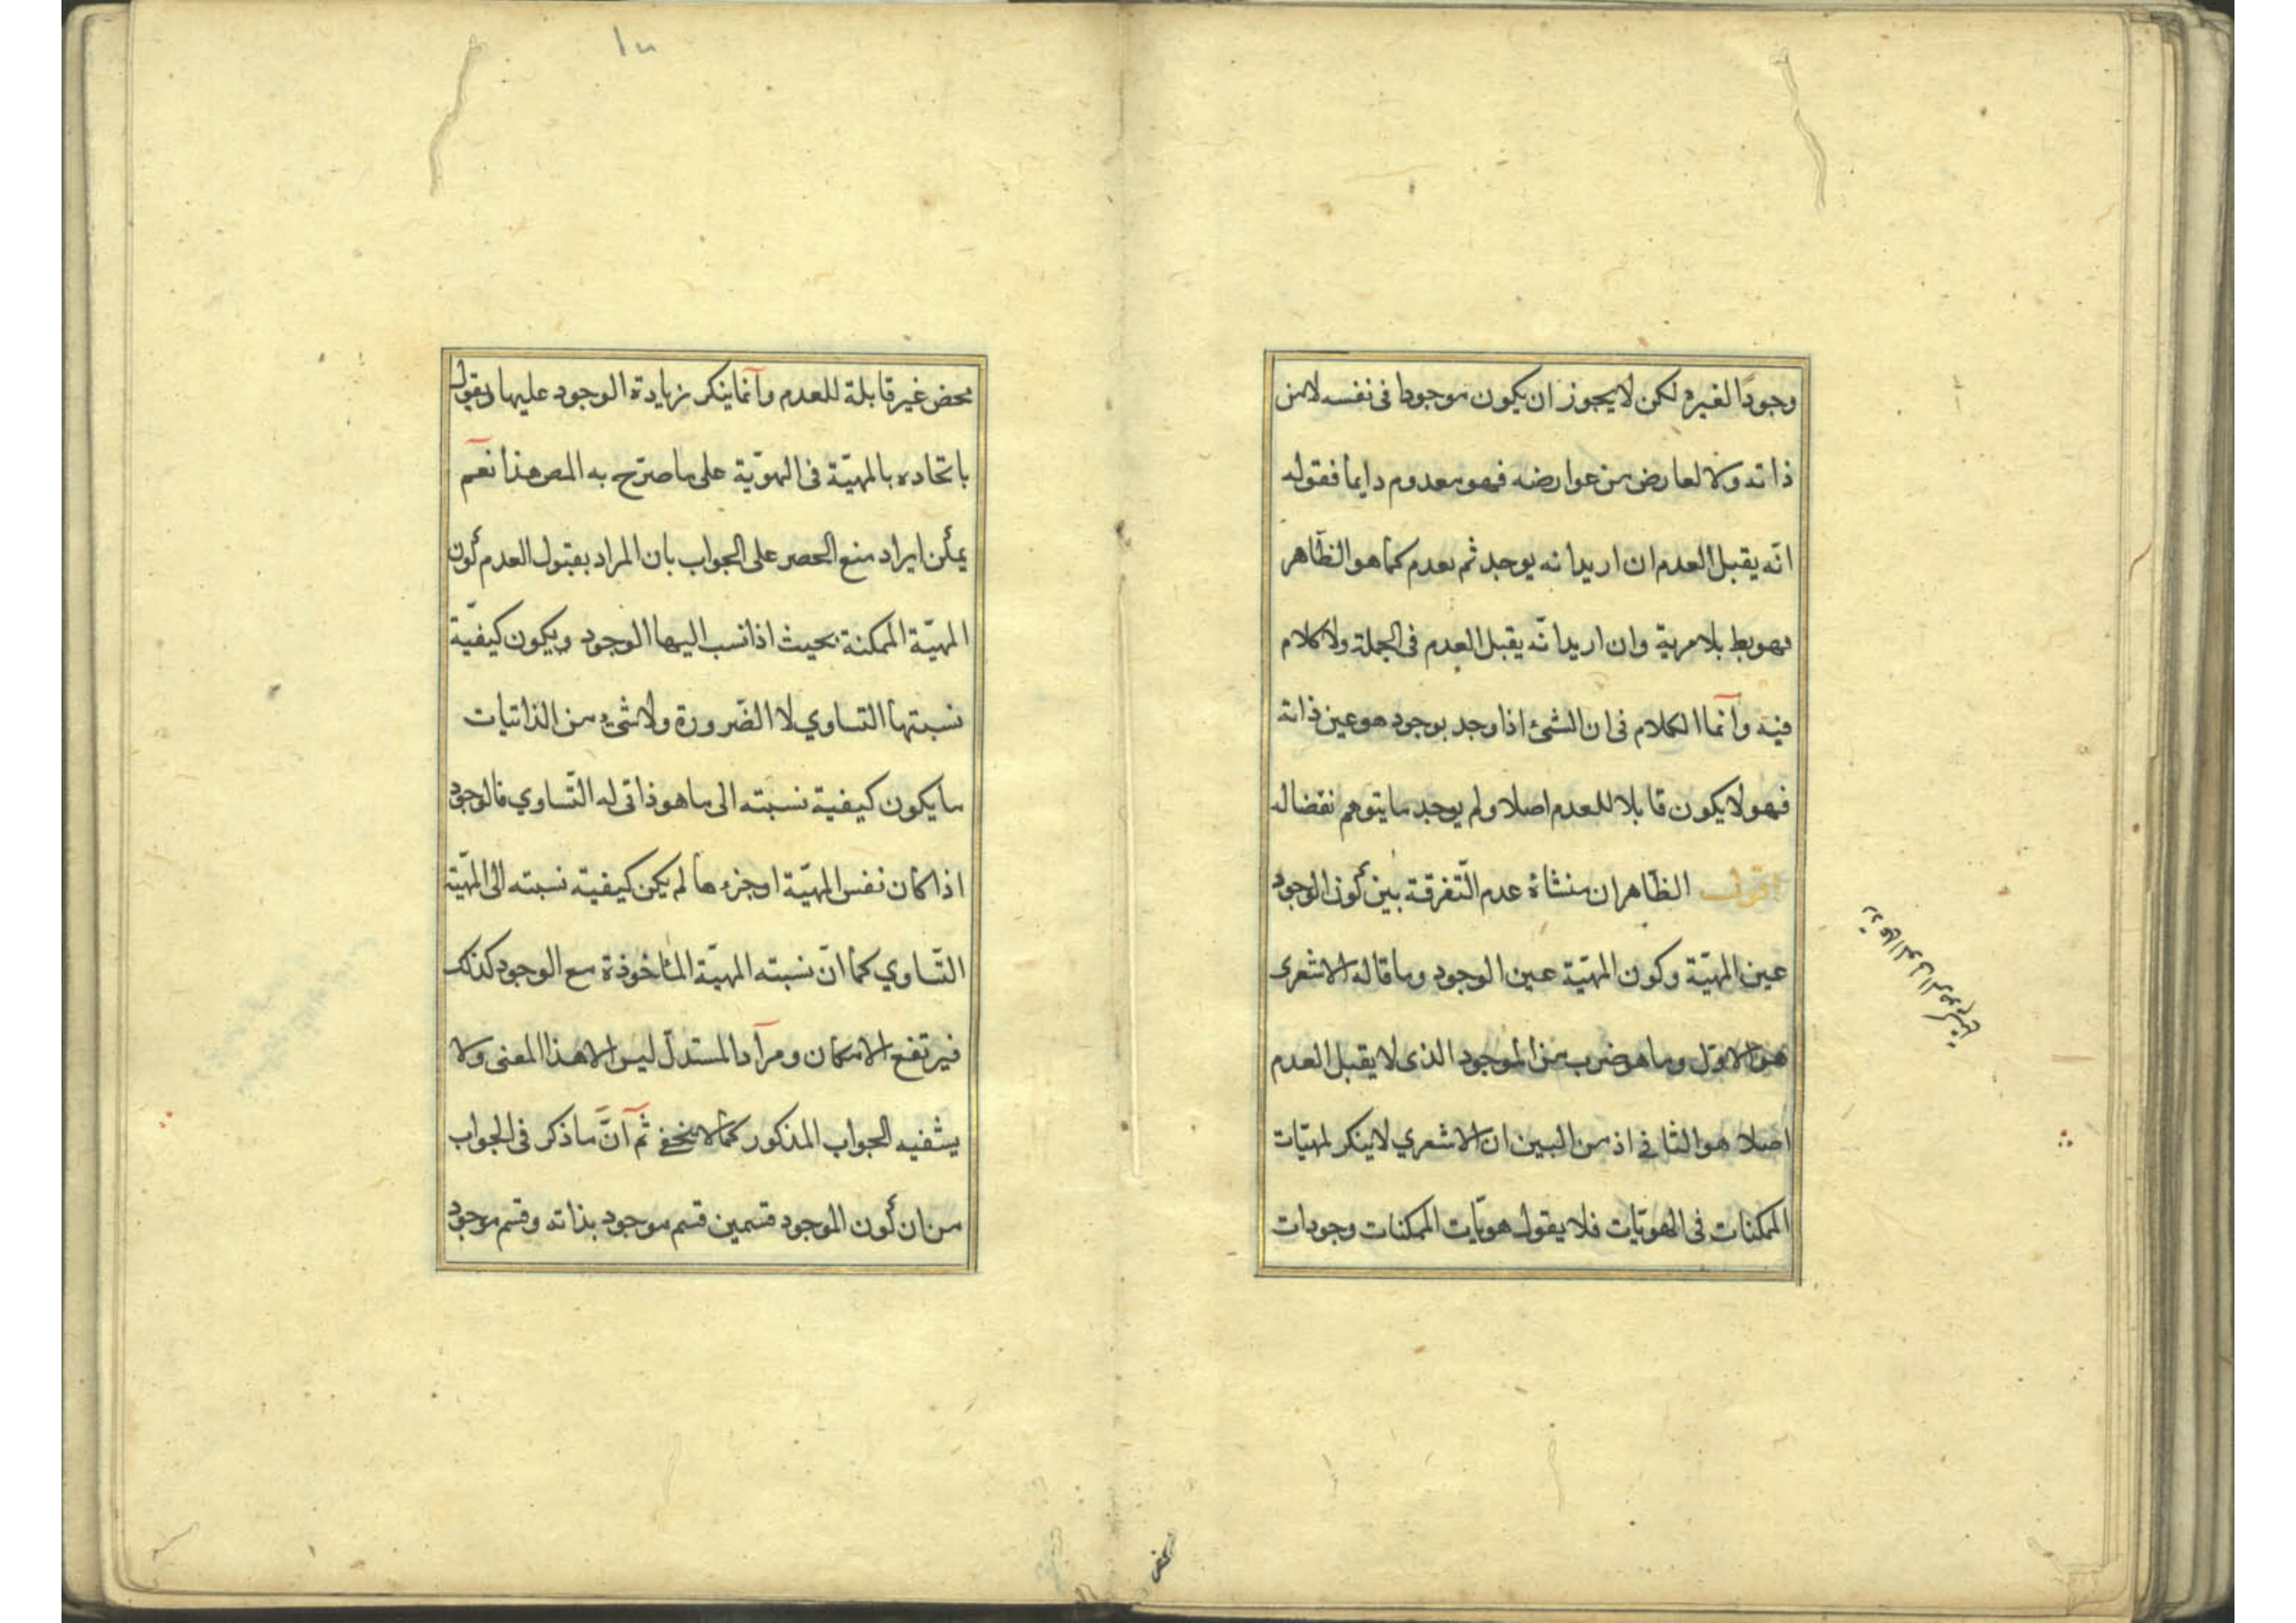 وجودًا لغيره لكن لا يجوز ان يكون موجودا فى نفسه لا من
ذاته ولا لعارض من عوارضه فهو معدوم دايما فقوله
انّه يقبل العدم ان اريد انه يوجد ثم يعدم كما هو الظاهر
فهو بط بلا مرية وان اريد انّه يقبل العدم فى الجملة ولا كلام
فيه وانّما الكلام فى ان الشئ اذا وجد بوجود هو عين ذاته
فهو لا يكون قابلا للعدم اصلا ولم يوجد ما يتوهم نقضا له
اقول الظاهر ان منشاه عدم التّفرقة بين كون الوجود
عين المهيّة وكون المهيّة عين الوجود وما قاله الاشعرى
هو الاوّل وما هو ضرب من الموجود الذى لا يقبل العدم
اصلا هو الثانى اذ من البين ان الاشعري لا ينكر لمهيّات
الممكنات فى الهويّات فلا يقول هويّات الممكنات وجودات
محض
محض غير قابلة للعدم وانّما ينكر زيادة الوجود عليها ويقول
باتحاده بالمهيّة فى الهويّة على ما صرّح به المص هذا نعم
يمكن ايراد منع الحصر على الجواب بان المراد بقبول العدم كون
المهيّة الممكنة بحيث اذا نسب اليها الوجود ويكون كيفيّة
نسبتها التساوي لا الضّرورة ولا شئ من الذاتيات
ما يكون كيفية نسبته الى ما هو ذاتى له التّساوي فالوجود
اذا كان نفس المهيّة او جزءها لم يكن كيفيّة نسبته الى المهيّة
التّساوي كما انّ نسبته المهيّة الماخوذة مع الوجود كذلك
فيرتفع الامكان ومراد المستدلّ ليس الا هذا المعنى ولا
يشفيه الجواب المذكور كما لا يخفى ثم انّ ما ذكر فى الجواب
من ان كون الموجود قسمين قسم موجود بذاته وقسم موجود